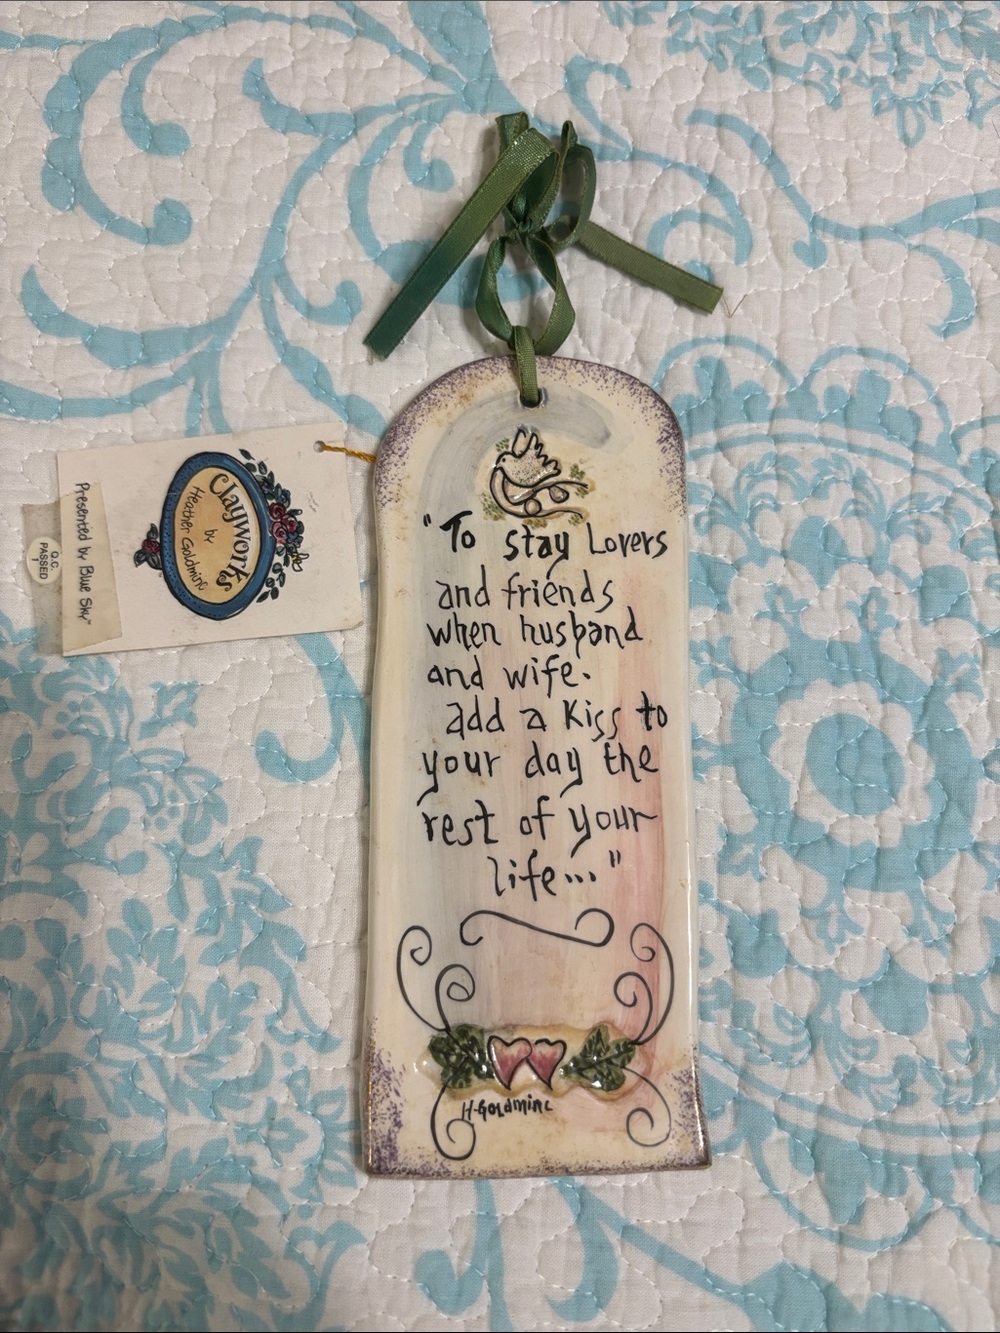 "To stay Lovers
and friends
when husband
and wife.
add a Kiss to
your day the
rest of your
life..."
H. Goldminc
Clayworks
by
Heather Goldminc
Presented by Blue Sky"
Q.C.
PASSED